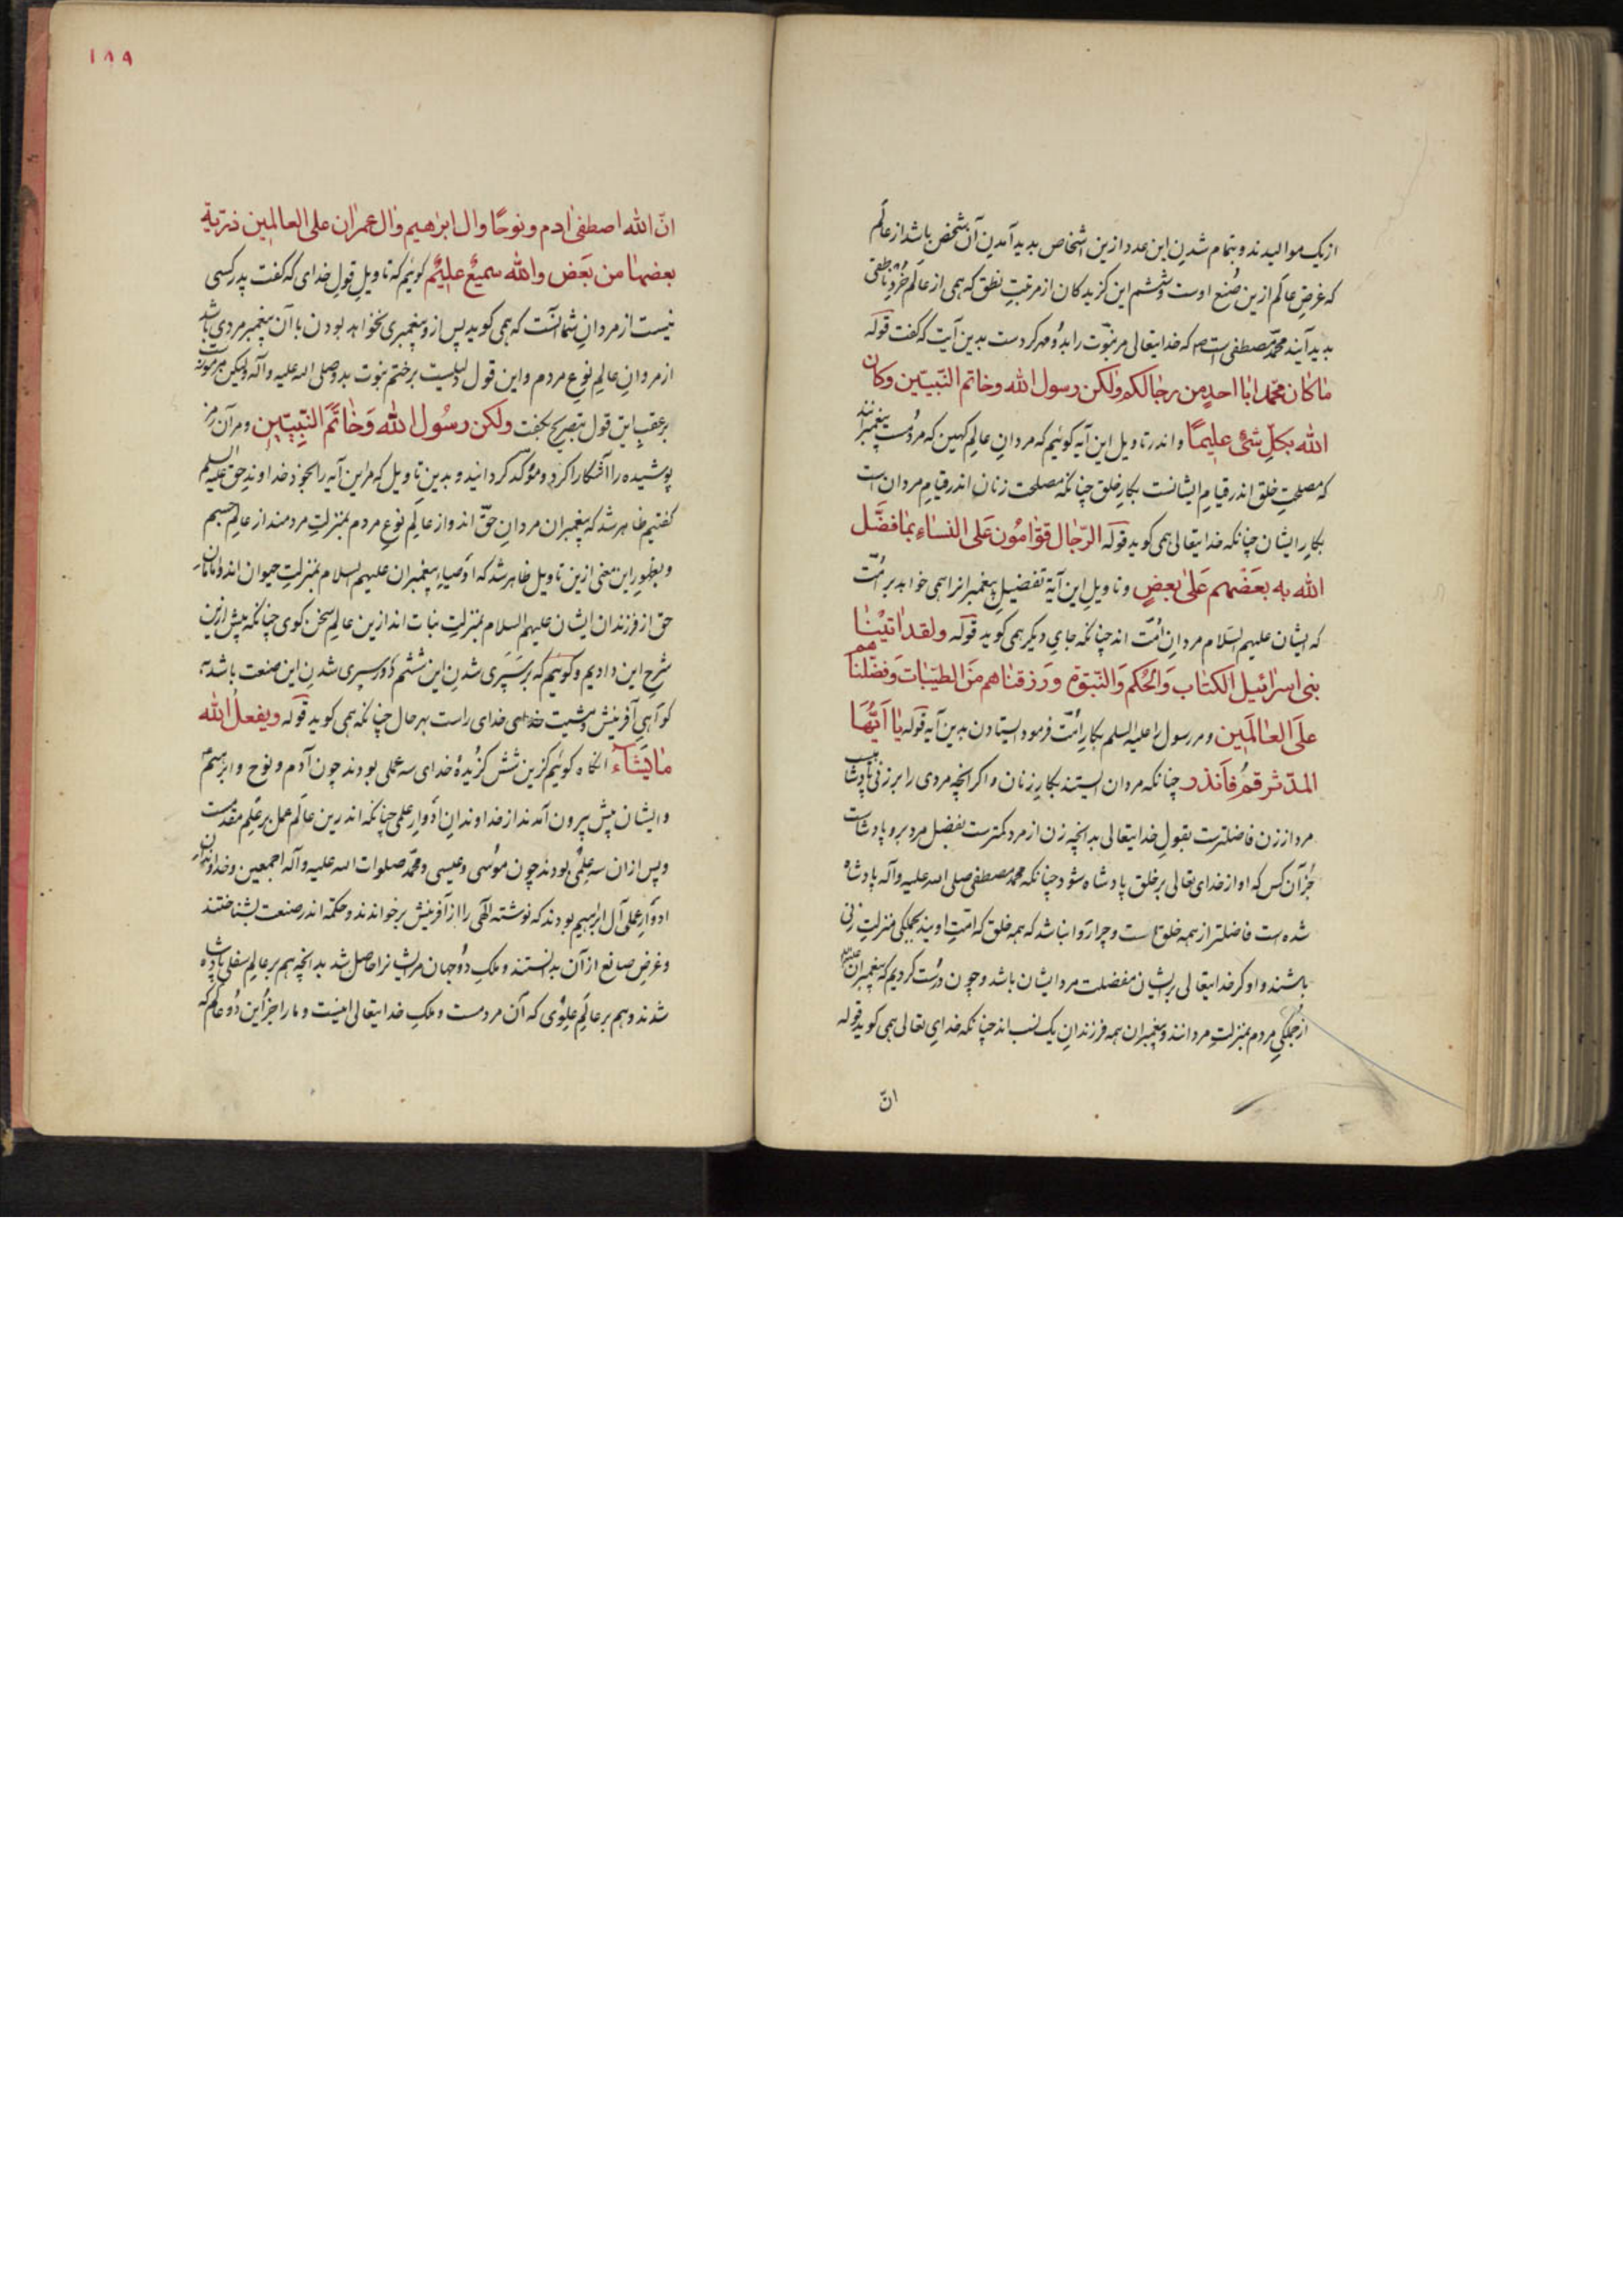 از یک موالیدند و بتمام شدنِ این عدد ازین اشخاص بدید آمدنِ آن شخص باشد از عالَم
که غرضِ عالَم ازین صُنع اوست و ششم این گزیدگان از مرتبتِ نطق که همی از عالَم خُرد ناطقی
بدید آیند محمّد مصطفی است ص که خدایتعالی مر نبوّت را بدو مهر کردست بدین آیت که گفت قوله
مٰا کٰان محمّد ابٰا احدٍ من رجٰالکم ولٰکن رسول الله وخاتم النّبیّین وکان
الله بکلّ شئ علیمًا و اندر تاویل این آیه گوئیم که مردانِ عالمِ کهین که مردُمست پیغمبرانند
که مصلحتِ خلق اندر قیامِ ایشانست بکارِ خلق چنانکه مصلحت زنان اندر قیامِ مردان است
بکارِ ایشان چنانکه خدایتعالی همی گوید قوله الرّجٰال قوّامُون عَلی النسٰاءِ بمٰا فضَّل
الله به بعَضَهم عَلیٰ بعضٍ و تاویلِ این آیة تفضیلِ پیغمبرانرا همی خواهد بر امّت
که ایشان علیهم السّلام مردانِ امّت اند چنانکه جایِ دیگر همی گوید قوله ولقد اٰتیْنٰا
بنی اسرٰائیل الکتٰاب وَالحُکم وَالنّبوّة ورَزقنٰاهم مَن الطیّبٰات وَفضّلنٰاهم
علَی العٰالَمین و مر رسول را علیه السلم بکارِ امّت فرمود ایستادن بدین آیه قوله یٰا اَیّهَا
المدّثر قمُ فاَنذر چنانکه مردان ایستند بکارِ زنان و اگر انچه مردی را بر زنی پادشاست
مرد از زن فاضلترست بقولِ خدایتعالی بدانچه زن از مرد کمترست بفضل مرد برو پادشاست
جُز آن کس که او از خدای تعالی بر خلق پادشاه شود چنانکه محمد مصطفی صلی الله علیه وآله پادشاه
شده است فاضلتر از همه خلق است و چرا روا نباشد که همه خلق که امّتِ اویند بجملگی منزلتِ زنی
باشند و او کز خدایتعالی بریشان مفضلست مرد ایشان باشد و چون درُست کردیم که پیغمبران علیهم
از جملگیِ مردم بمنزلتِ مردانند و پیغمبران همه فرزندانِ یک نسب اند چنانکه خدای تعالی همی گوید قوله
انّ
۱۸۹
انّ الله اصطفیٰ اٰدم ونوحًا واٰل ابرٰهیم واٰل عمرٰان علی العالمین ذرّیة
بعضهٰا من بَعَض والله سمیعٌ علیمٌ گوئیم که تاویلِ قولِ خدای که گفت پدر کسی
نیست از مردانِ شما آنست که همی گوید پس ازو پیغمبری نخواهد بودن با آن پیغمبر مردی باشد
از مردانِ عالمِ نوعِ مردم و این قول دلیلست بر ختم نبوّت بدو صلی الله علیه وآله ولیکن مرموزست
بر عقبِ این قول بتصریح بگفت ولٰکن رسُول الله وَخٰاتَمَ النّبیّین و مر آن رمز
پوشیده را آشکارا کرد و مؤکّد گردانید و بدین تاویل که مر این آیه را بجوذ خداوندِ حق علیه السلم
گفتیم ظاهر شد که پیغمبران مردانِ حقّ اند و از عالَمِ نوع مردم بمنزلتِ مردمند از عالمِ جسم
و بظهورِ این معنی ازین تاویل ظاهر شد که اوصیاءِ پیغمبران علیهم السلام بمنزلتِ حیوان اند و امامانِ
حق از فرزندان ایشان علیهم السلام بمنزلتِ نبات اند ازین عالمِ سخن گوی چنانکه پیش ازین
شرحِ این دادیم و گوئیم که بر سَپَری شدنِ این ششم دَور سپری شدنِ این صنعت باشد به
گواهیِ آفرینش و مشیت خدای راست بهر حال چنانکه همی گوید قوله ویفعل الله
مٰا یَشٰاء آنگاه گوئیم کزین شش گزیدهٔ خدای سه عملی بودند چون آدم و نوح و ابرهیم
و ایشان پیش بیرون آمدند از خداوندانِ ادوارِ علمی چنانکه اندرین عالَم عمل بر علم مقدمست
و پس از ان سه علمی بودند چون موسی و عیسی و محمّد صلوات الله علیه وآله اجمعین و خداوندانِ
ادوارِ علمی آلِ ابرهیم بودند که نوشته الٓهی را از آفرینش برخواندند و حکمة اندر صنعت بشناختند
و غرضِ صانع از آن بدانستند و ملکِ دوُجهان مر ایشانرا حاصل شد بدانچه هم بر عالمِ سفلی پادشاه
شدند و هم بر عالَمِ علوی که آن مردمست و ملکِ خدایتعالی اینست و ما را جز این دُو عالَم که